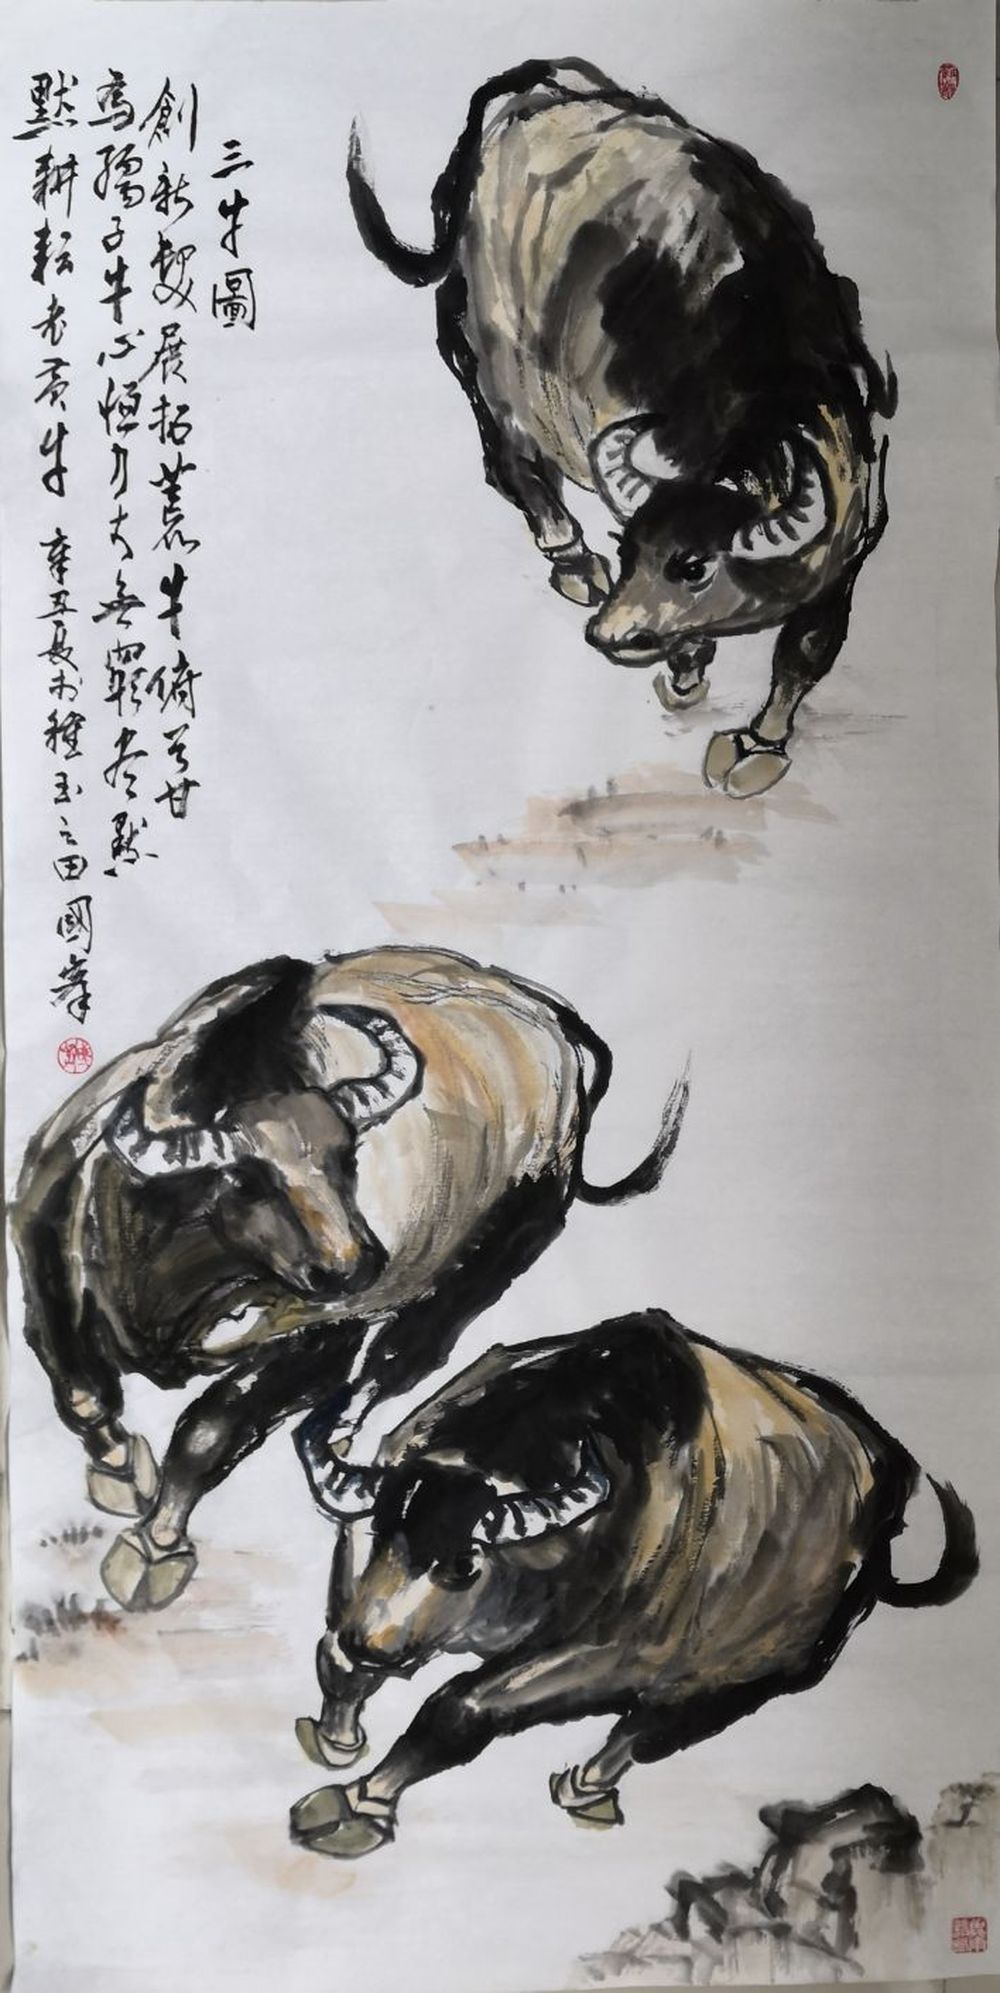 三牛圖
創新發展拓荒牛俯首甘
為孺子牛心恒力大無窮尽默
默耕耘老黃牛 辛丑夏於種玉之田國峯